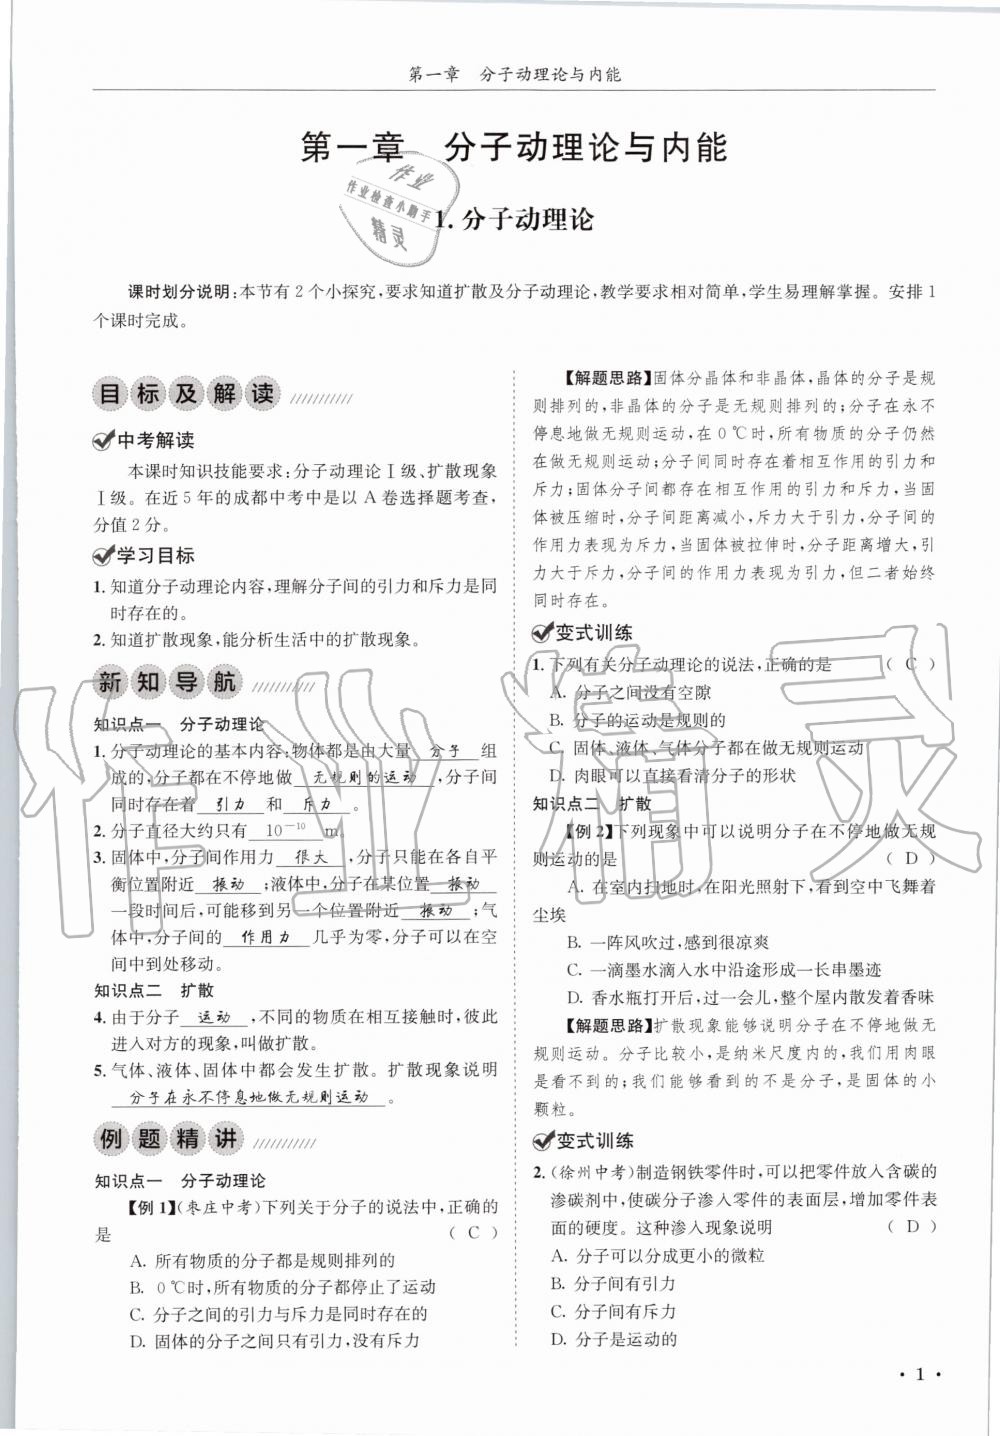 第一章 分子动理论与内能
第一章 分子动理论与内能
1. 分子动理论
课时划分说明:本节有2个小探究,要求知道扩散及分子动理论,教学要求相对简单,学生易理解掌握。安排1
个课时完成。
目标及解读
中考解读
本课时知识技能要求:分子动理论Ⅰ级、扩散现象
Ⅰ级。在近5年的成都中考中是以A卷选择题考查,
分值2分。
学习目标
1. 知道分子动理论内容,理解分子间的引力和斥力是同
时存在的。
2. 知道扩散现象,能分析生活中的扩散现象。
新知导航
知识点一 分子动理论
1. 分子动理论的基本内容:物体都是由大量 分子 组
成的,分子都在不停地做 无规则的运动 ,分子间
同时存在着 引力 和 斥力 。
2. 分子直径大约只有 10⁻¹⁰ m。
3. 固体中,分子间作用力 很大 ,分子只能在各自平
衡位置附近 振动 ;液体中,分子在某位置 振动
一段时间后,可能移到另一个位置附近 振动 ;气
体中,分子间的 作用力 几乎为零,分子可以在空
间中到处移动。
知识点二 扩散
4. 由于分子 运动 ,不同的物质在相互接触时,彼此
进入对方的现象,叫做扩散。
5. 气体、液体、固体中都会发生扩散。扩散现象说明
分子在永不停息地做无规则运动 。
例题精讲
知识点一 分子动理论
【例1】(枣庄中考)下列关于分子的说法中,正确的
是 ( C )
A. 所有物质的分子都是规则排列的
B. 0℃时,所有物质的分子都停止了运动
C. 分子之间的引力与斥力是同时存在的
D. 固体的分子之间只有引力,没有斥力
【解题思路】固体分晶体和非晶体,晶体的分子是规
则排列的,非晶体的分子是无规则排列的;分子在永不
停息地做无规则运动,在0℃时,所有物质的分子仍然
在做无规则运动;分子间同时存在着相互作用的引力和
斥力;固体分子间都存在相互作用的引力和斥力,当固
体被压缩时,分子间距离减小,斥力大于引力,分子间的
作用力表现为斥力,当固体被拉伸时,分子距离增大,引
力大于斥力,分子间的作用力表现为引力,但二者始终
同时存在。
变式训练
1. 下列有关分子动理论的说法,正确的是 ( C )
A. 分子之间没有空隙
B. 分子的运动是规则的
C. 固体、液体、气体分子都在做无规则运动
D. 肉眼可以直接看清分子的形状
知识点二 扩散
【例2】下列现象中可以说明分子在不停地做无规
则运动的是 ( D )
A. 在室内扫地时,在阳光照射下,看到空中飞舞着
尘埃
B. 一阵风吹过,感到很凉爽
C. 一滴墨水滴入水中沿途形成一长串墨迹
D. 香水瓶打开后,过一会儿,整个屋内散发着香味
【解题思路】扩散现象能够说明分子在不停地做无
规则运动。分子比较小,是纳米尺度内的,我们用肉眼
是看不到的;我们能够看到的不是分子,是固体的小
颗粒。
变式训练
2. (徐州中考)制造钢铁零件时,可以把零件放入含碳的
渗碳剂中,使碳分子渗入零件的表面层,增加零件表
面的硬度。这种渗入现象说明 ( D )
A. 分子可以分成更小的微粒
B. 分子间有引力
C. 分子间有斥力
D. 分子是运动的
· 1 ·
作业
作业检查小助手
精灵
作业精灵